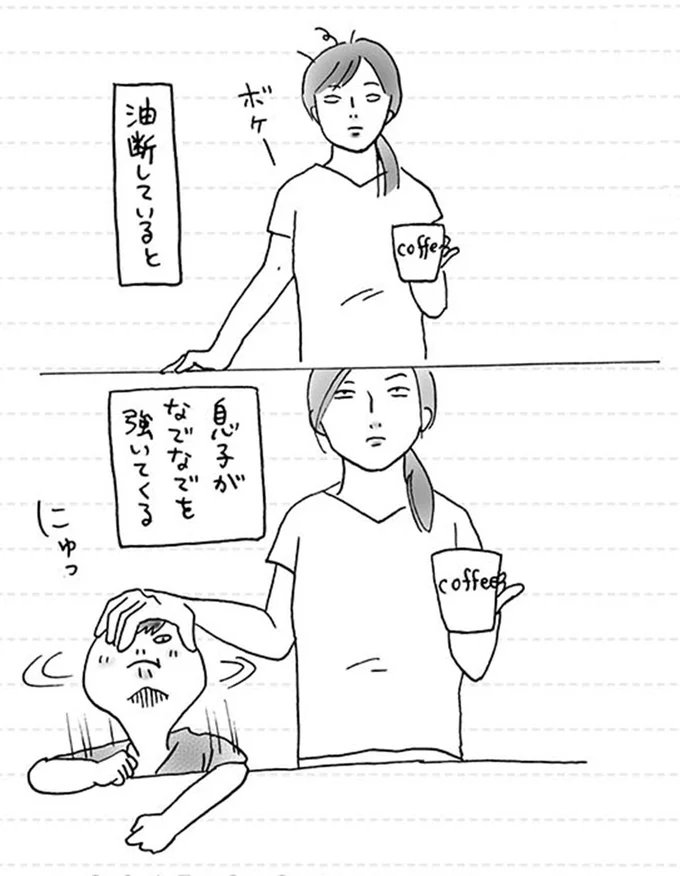 ボケー
油断していると
coffee
息子が
なでなでを
強いてくる
にゅっ
coffee